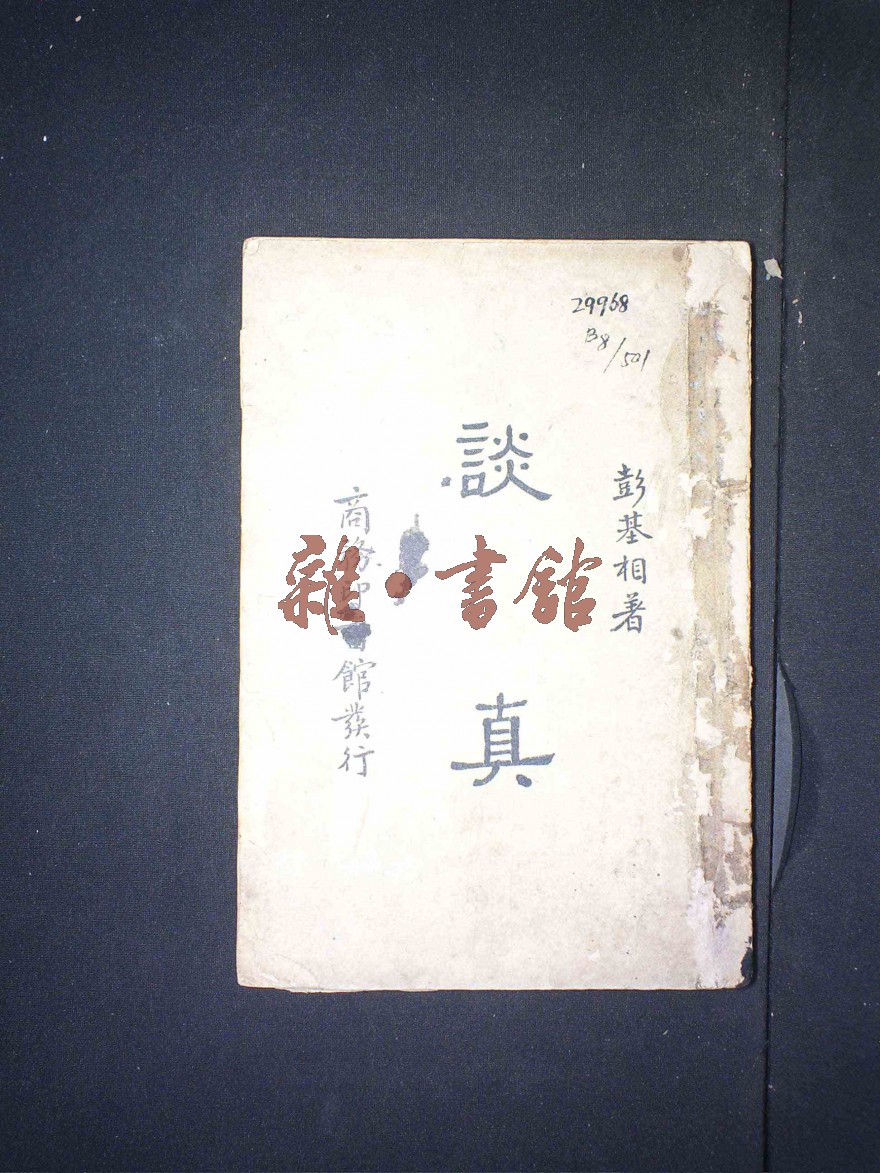 29968
B8/501
彭基相著
談真
商務印書館發行
雜·書館